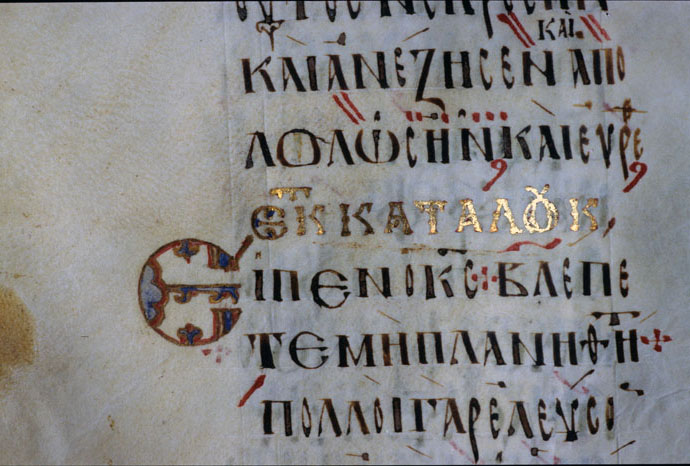 ΟΥΤΟϹ ΝΕΚΡΟϹ ΗΝ
ΚΑΙ
ΚΑΙ ΑΝΕΖΗϹΕΝ ΑΠΟ
ΛΩΛΩϹ ΗΝ ΚΑΙ ΕΥΡΕ
ΕΚ ΚΑΤΑ ΛΟΥΚ
ΕΙΠΕΝ Ο Κ̅Ϲ̅ ΒΛΕΠΕ
ΤΕ ΜΗ ΠΛΑΝΗΘΗΤ
ΠΟΛΛΟΙ ΓΑΡ ΕΛΕΥϹΟ